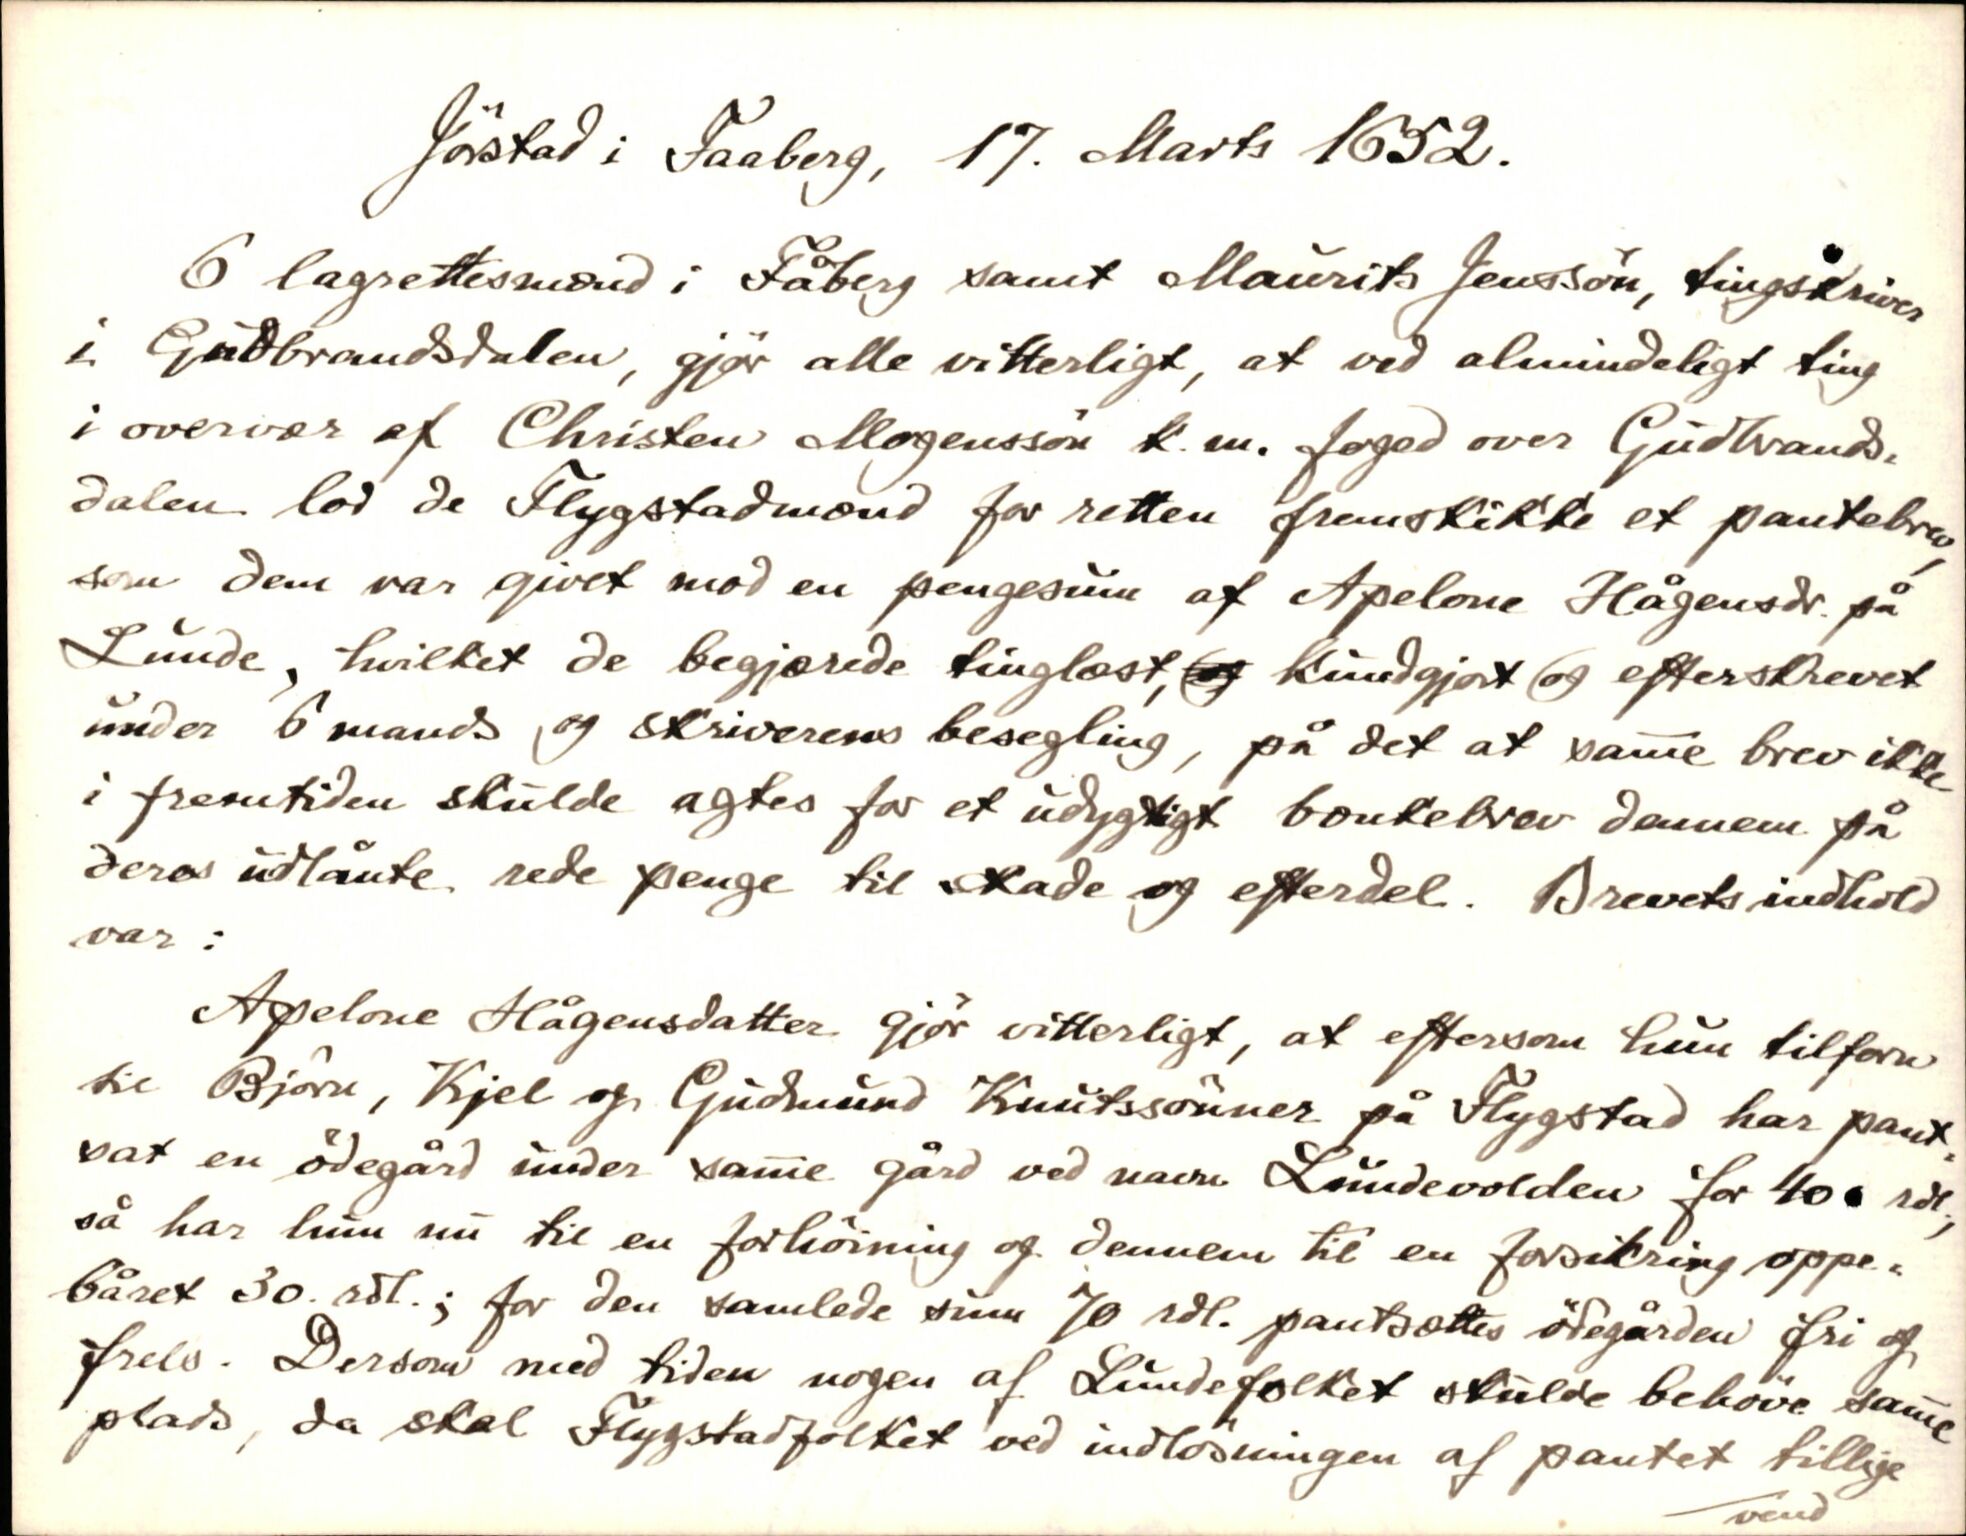 Jörstad i Faaberg, 17. Marts 1652.
6 lagrettesmænd i Fåberg samt Maurits Jenssön, tingskriver
i Gudbrandsdalen, gjör alle vitterligt, at ved almindeligt ting
i overvær af Christen Mogenssön k. m. foged over Gudbrands-
dalen lod de Flygstadmænd for retten fremskikke et pantebrev,
som dem var givet mod en pengesum af Apelone Hågensdr. på
Lunde, hvilket de begjærede tinglæst, og kundgjort og efterskrevet
under 6 mænds og skriverens besegling, på det at same brev ikke
i fremtiden skulde agtes for et udygtigt bænkebrev dennem på
deres udlånte rede penge til skade og efterdel. Brevets indhold
var:
Apelone Hågensdatter gjör vitterligt, at eftersom hun tilforn
til Björn, Kjel og Gudmund Knutssönner på Flygstad har pant-
sat en ödegård under same gård ved navn Lundevolden for 40 rdl.,
så har hun nu til en forhöining og dennem til en forsikring oppe-
båret 30. rdl.; for den samlede sum 70 rdl. pantsættes ödegården fri og
frels. Dersom med tiden nogen af Lundefolket skulde behöve same
plads, da skal Flygstadfolket ved indlösningen af pantet tillige
vend